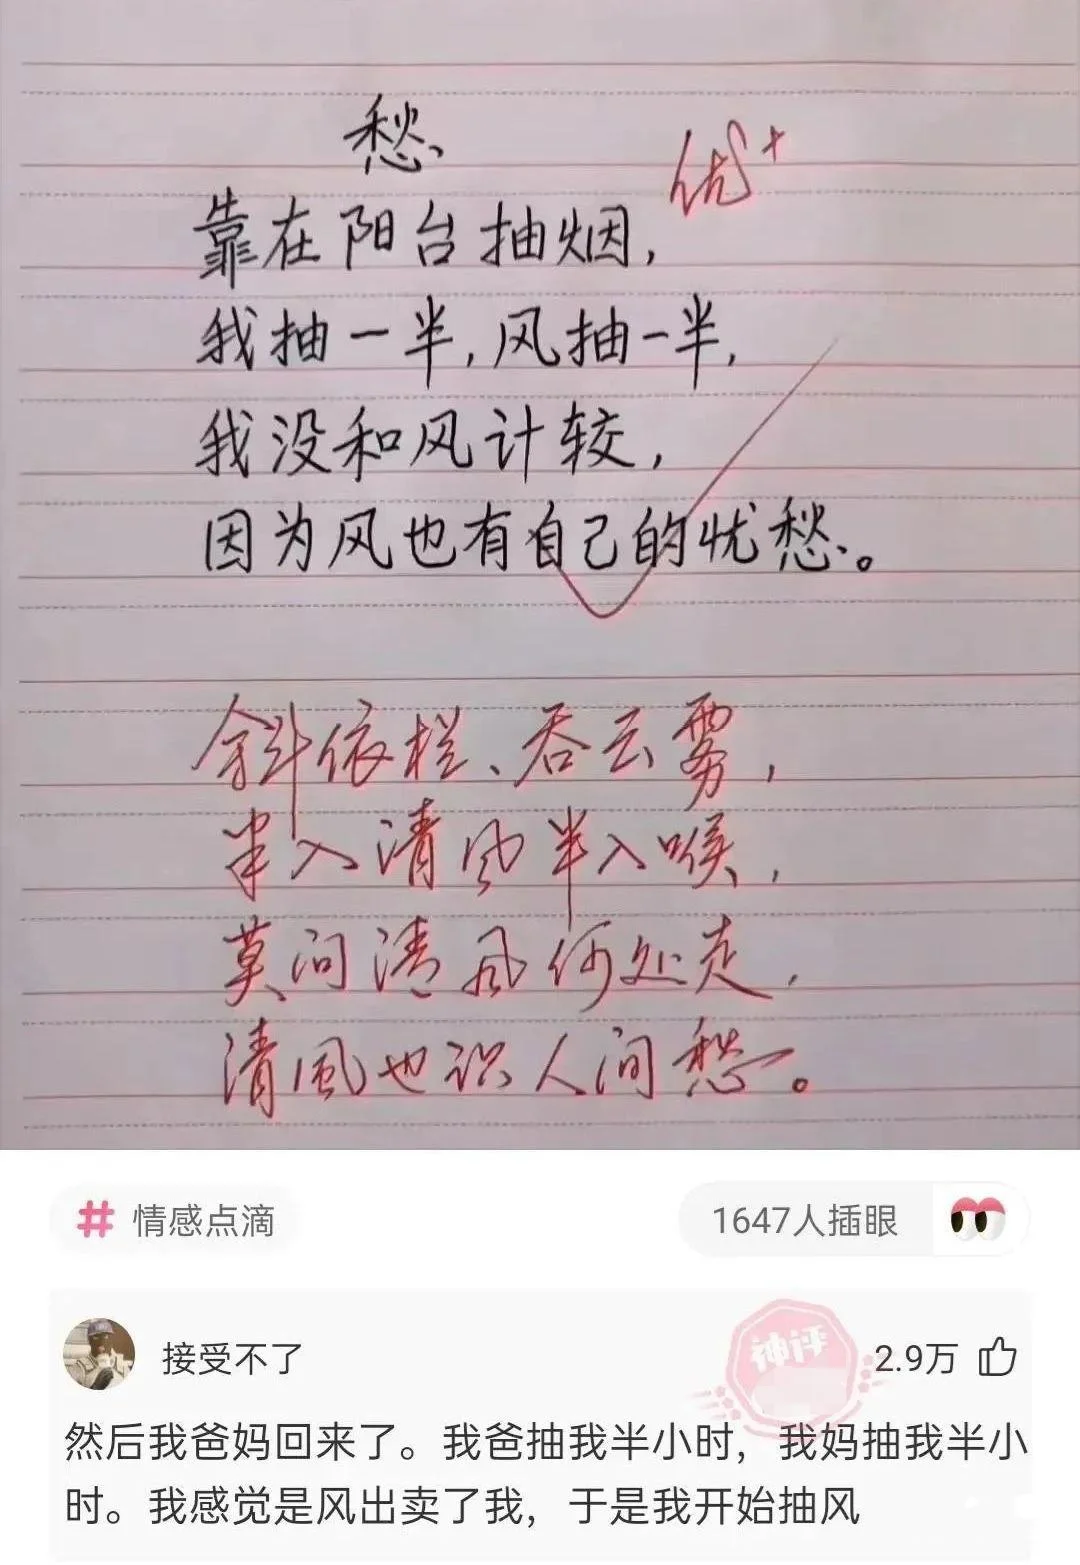 愁
优+
靠在阳台抽烟，
我抽一半，风抽一半，
我没和风计较，
因为风也有自己的忧愁。
斜依栏、吞云雾，
半入清风半入喉，
莫问清风何处走，
清風也识人间愁。
# 情感点滴
1647人插眼
接受不了
神评
2.9万
然后我爸妈回来了。我爸抽我半小时，我妈抽我半小
时。我感觉是风出卖了我，于是我开始抽风